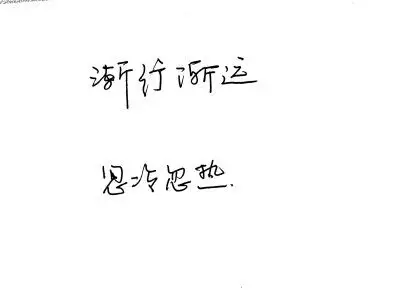 渐行渐远
忽冷忽热.